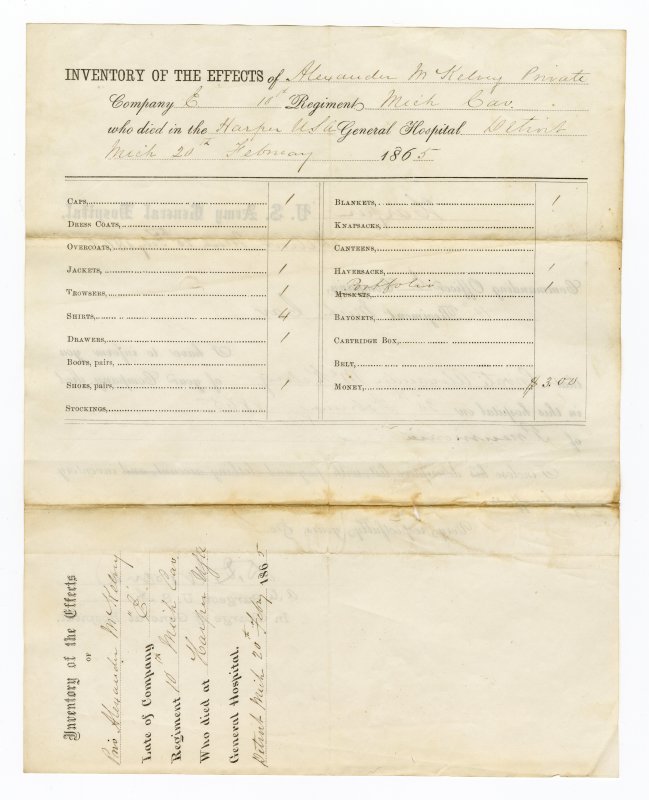 INVENTORY OF THE EFFECTS of Alexander McKelvey Private
Company E 10th Regiment Mich Cav.
who died in the Harper USA General Hospital Detroit
Mich 20th February 1865
CAPS, 1
DRESS COATS,
OVERCOATS, 1
JACKETS, 1
TROWSERS, 1
SHIRTS, 4
DRAWERS, 1
BOOTS, pairs,
SHOES, pairs, 1
STOCKINGS,
BLANKETS, 1
KNAPSACKS,
CANTEENS,
HAVERSACKS, 1
Portfolio
MUSKETS, 1
BAYONETS,
CARTRIDGE BOX,
BELT,
MONEY, $3.00
Inventory of the Effects
OF
Alexander McKelvey
Late of Company "E"
Regiment 10th Mich Cav.
Who died at Harper
General Hospital.
Detroit Mich 20th Feby 1865